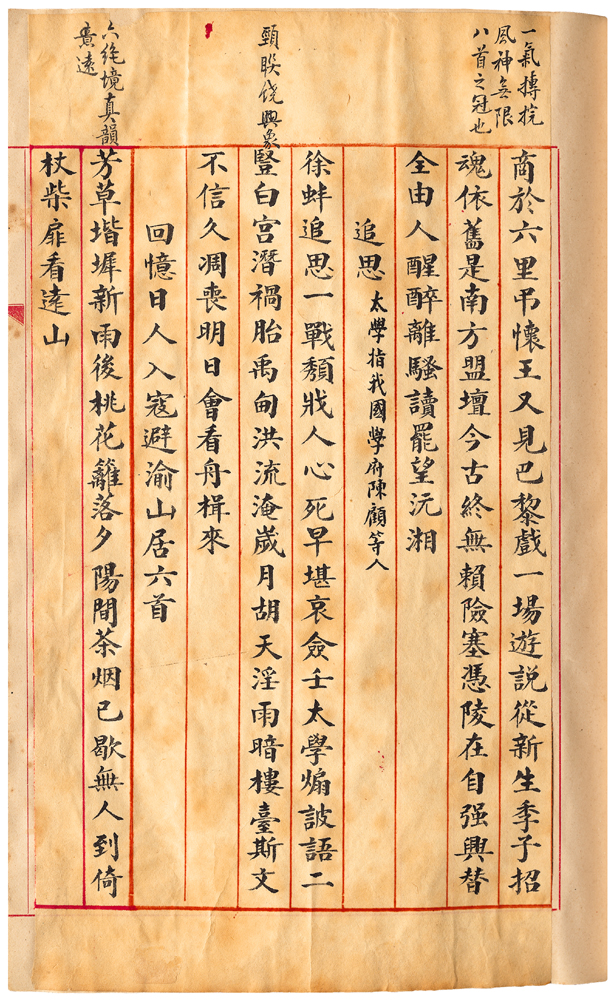 一氣摶捖
風神無限
八首之冠也
商於六里弔懷王又見巴黎戲一場遊説從新生季子招
魂依舊是南方盟壇今古終無賴險塞憑陵在自强興替
全由人醒醉離騷讀罷望沅湘
追思 太學指我國學府陳顧等人
徐蚌追思一戰頹戕人心死早堪哀僉壬太學煽詖語二
豎白宮潛禍胎禹甸洪流淹歲月胡天淫雨暗樓臺斯文
不信久凋喪明日會看舟楫來
興象
回憶日人入寇避渝山居六首
六絶境真韻
貴遠
芳草堦墀新雨後桃花籬落夕陽間茶烟已歇無人到倚
杖柴扉看遠山